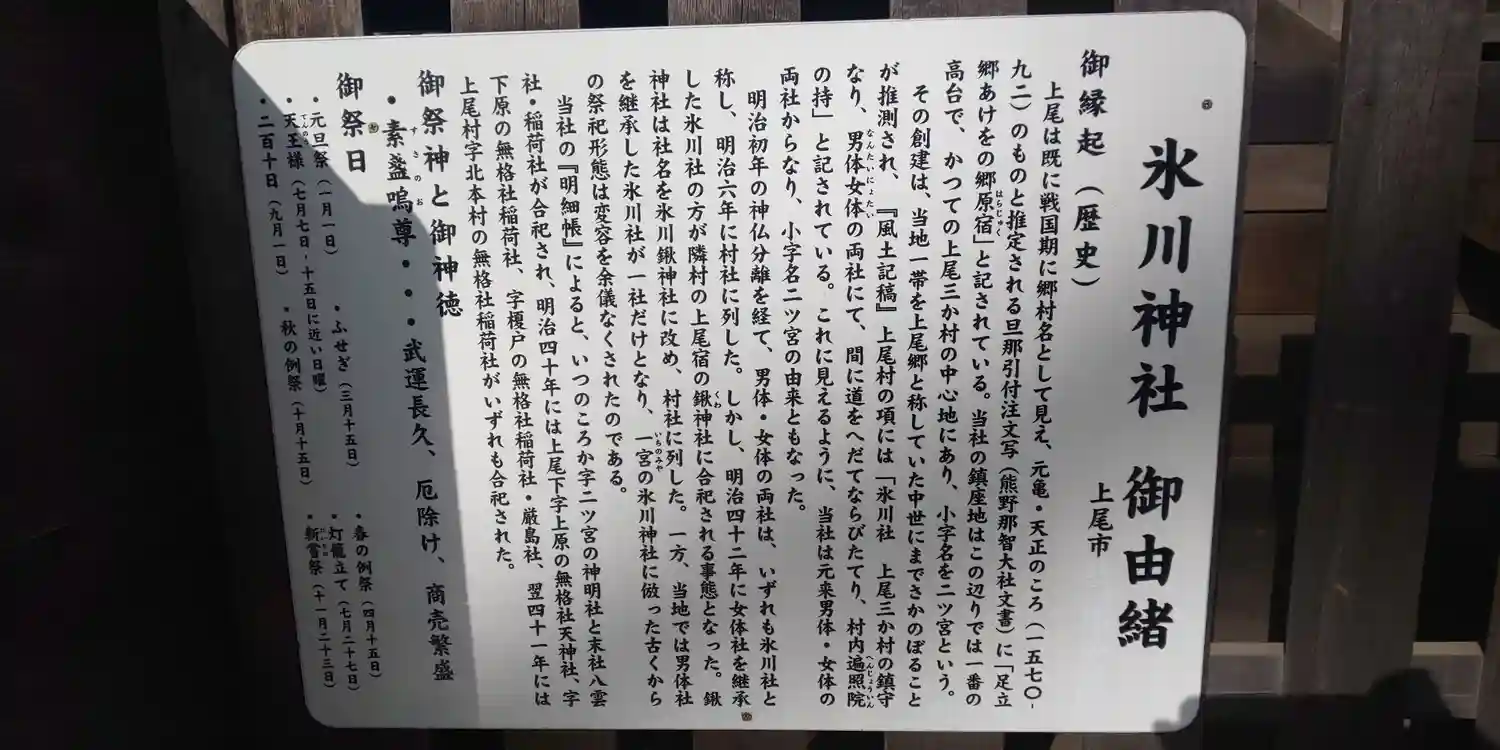 氷川神社 御由緒
上尾市
御縁起(歴史)
上尾は既に戦国期に郷村名として見え、元亀・天正のころ(一五七〇-
九二)のものと推定される旦那引付注文写(熊野那智大社文書)に「足立
郷あけをの郷原宿」と記されている。当社の鎮座地はこの辺りでは一番の
高台で、かつての上尾三か村の中心地にあり、小字名を二ツ宮という。
その創建は、当地一帯を上尾郷と称していた中世にまでさかのぼること
が推測され、『風土記稿』上尾村の項には「氷川社 上尾三か村の鎮守
なり、男体女体の両社にて、間に道をへだてならびたてり、村内遍照院
の持」と記されている。これに見えるように、当社は元来男体・女体の
両社からなり、小字名二ツ宮の由来ともなった。
明治初年の神仏分離を経て、男体・女体の両社は、いずれも氷川社と
称し、明治六年に村社に列した。しかし、明治四十二年に女体社を継承
した氷川社の方が隣村の上尾宿の鍬神社に合祀される事態となった。鍬
神社は社名を氷川鍬神社に改め、村社に列した。一方、当地では男体社
を継承した氷川社が一社だけとなり、一宮の氷川神社に倣った古くから
の祭祀形態は変容を余儀なくされたのである。
当社の『明細帳』によると、いつのころか字二ツ宮の神明社と末社八雲
社・稲荷社が合祀され、明治四十年には上尾下字上原の無格社天神社、字
下原の無格社稲荷社、字榎戸の無格社稲荷社・厳島社、翌四十一年には
上尾村字北本村の無格社稲荷社がいずれも合祀された。
御祭神と御神徳
・素盞嗚尊・・・武運長久、厄除け、商売繁盛
御祭日
・元旦祭(一月一日) ・ふせぎ(三月十五日) ・春の例祭(四月十五日)
・天王様(七月七日-十五日に近い日曜) ・灯籠立て(七月二十七日)
・二百十日(九月一日) ・秋の例祭(十月十五日) ・新嘗祭(十一月二十三日)